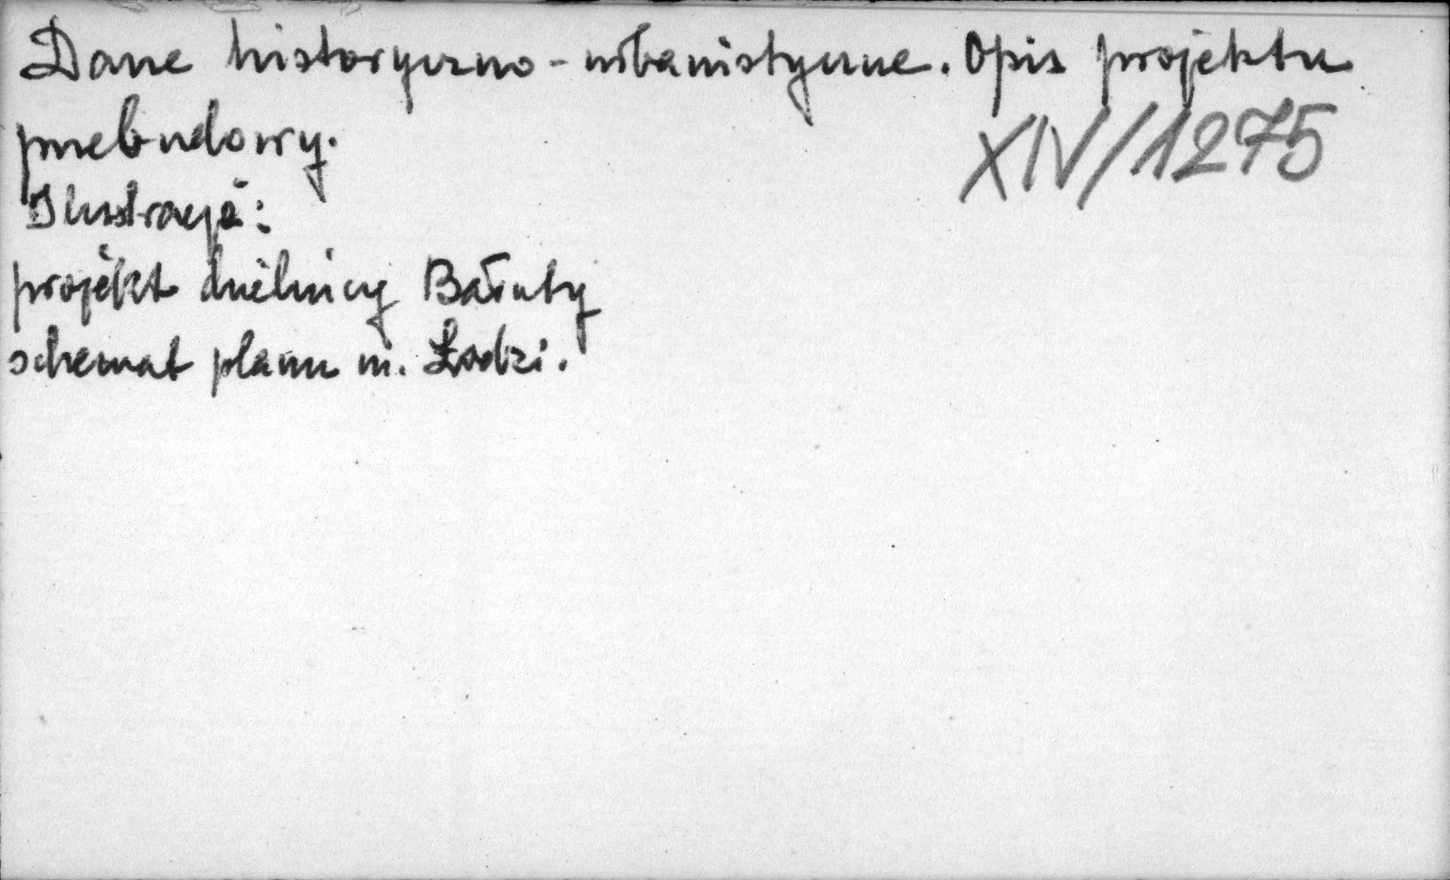 Dane historyczno-urbanistyczne. Opis projektu
przebudowy.
XIV/1275
Ilustracje:
projekt dzielnicy Bałuty
schemat planu m. Łodzi.